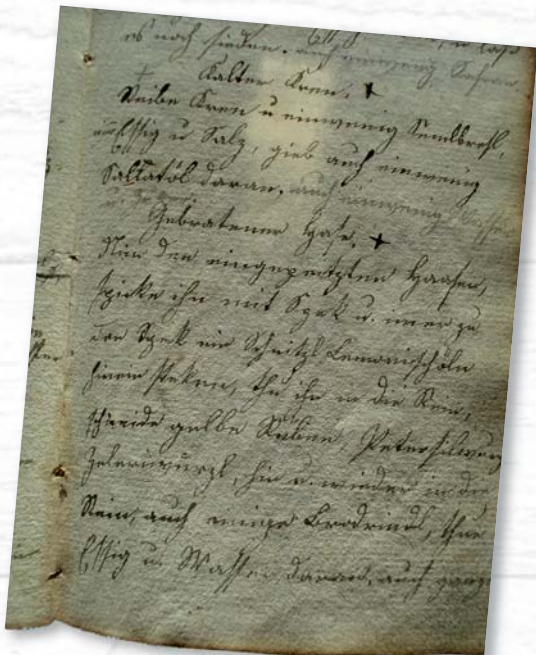 es noch sieden. auch einwenig Safran
Kalter Kren. +
Reibe Kren u einwenig Semlbresl,
Essig u Salz, gieb auch einwenig
Sallatöl daran, auch einwenig Wasser
Gebratener Hase. +
Nim den eingepeitzten Haasen,
spicke ihn mit Spek u. imer zu
den Spek ein Schnitzl Lemonischöln
hinein steken, thu ihn in die Rein,
schneide gelbe Rüben, Petersilwurz
Zelerwurzl, hin u. wieder in die
Rein, auch einige Brodrindl, thue
Essig u. Wasser daran, auch ganze